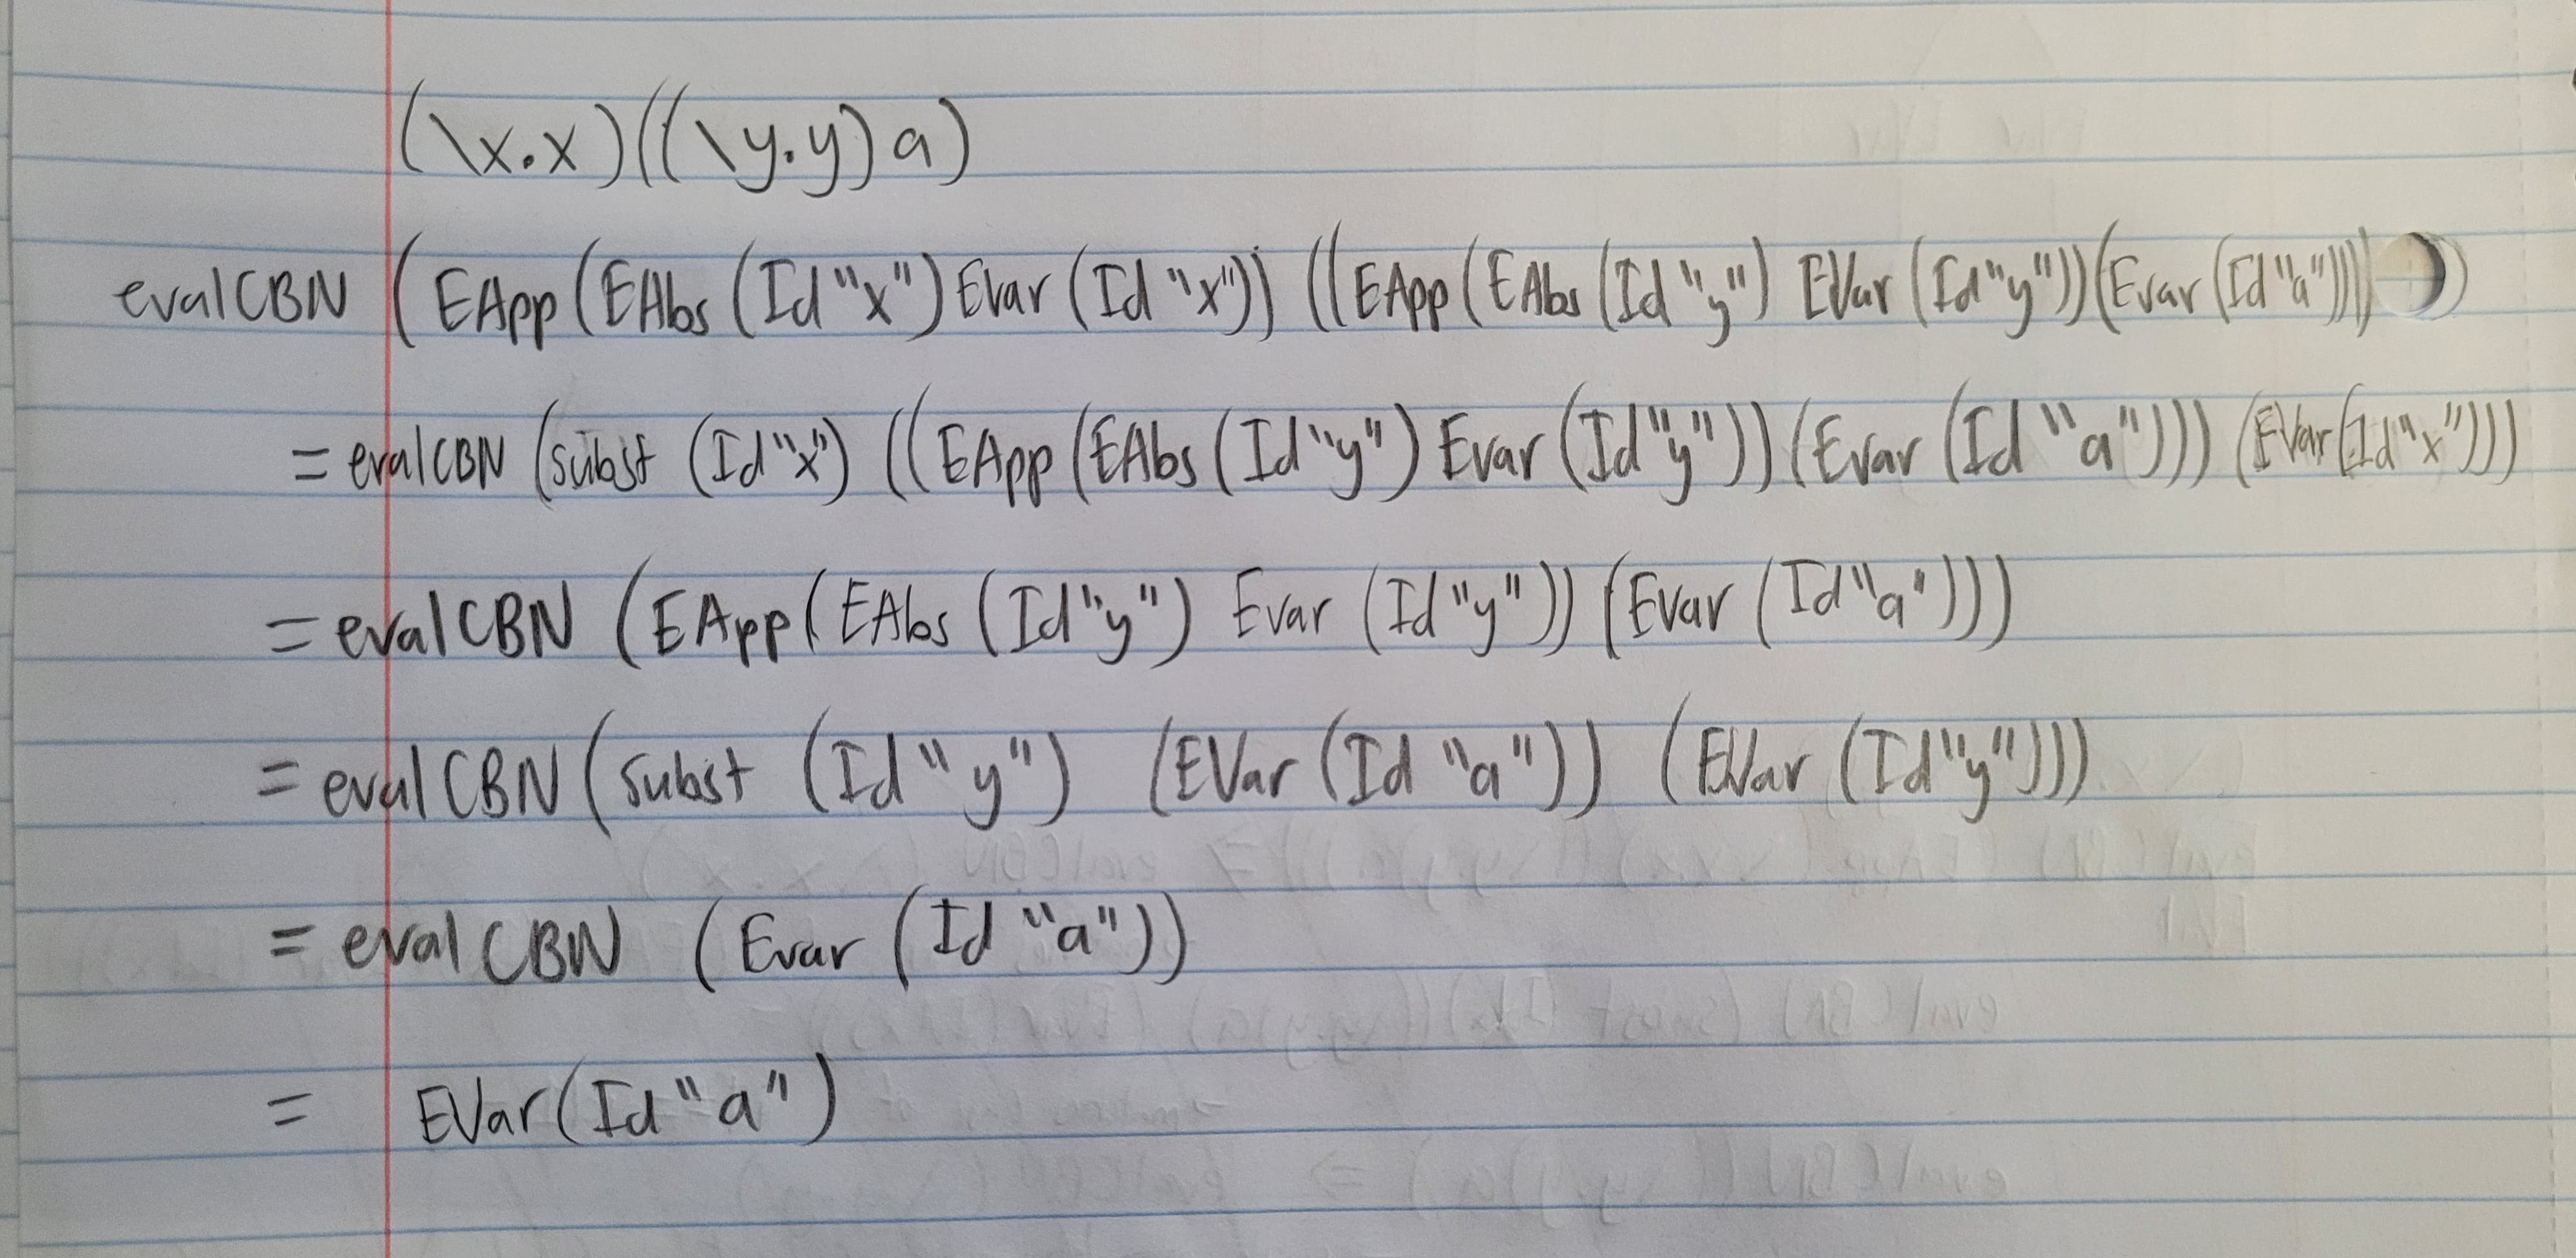 (\x.x)((\y.y)a)
evalCBN (EApp(EAbs(Id"x")Evar(Id"x")) ((EApp(EAbs(Id"y") EVar(Id"y"))(Evar(Id"a"))))
= evalCBN (subst (Id"x") ((EApp(EAbs(Id"y") Evar(Id"y"))(Evar(Id"a"))) (EVar(Id"x")))
= evalCBN (EApp(EAbs(Id"y") Evar(Id"y")) (EVar(Id"a")))
= evalCBN (subst (Id"y") (EVar(Id"a")) (EVar(Id"y")))
= evalCBN (Evar(Id"a"))
= EVar(Id"a")